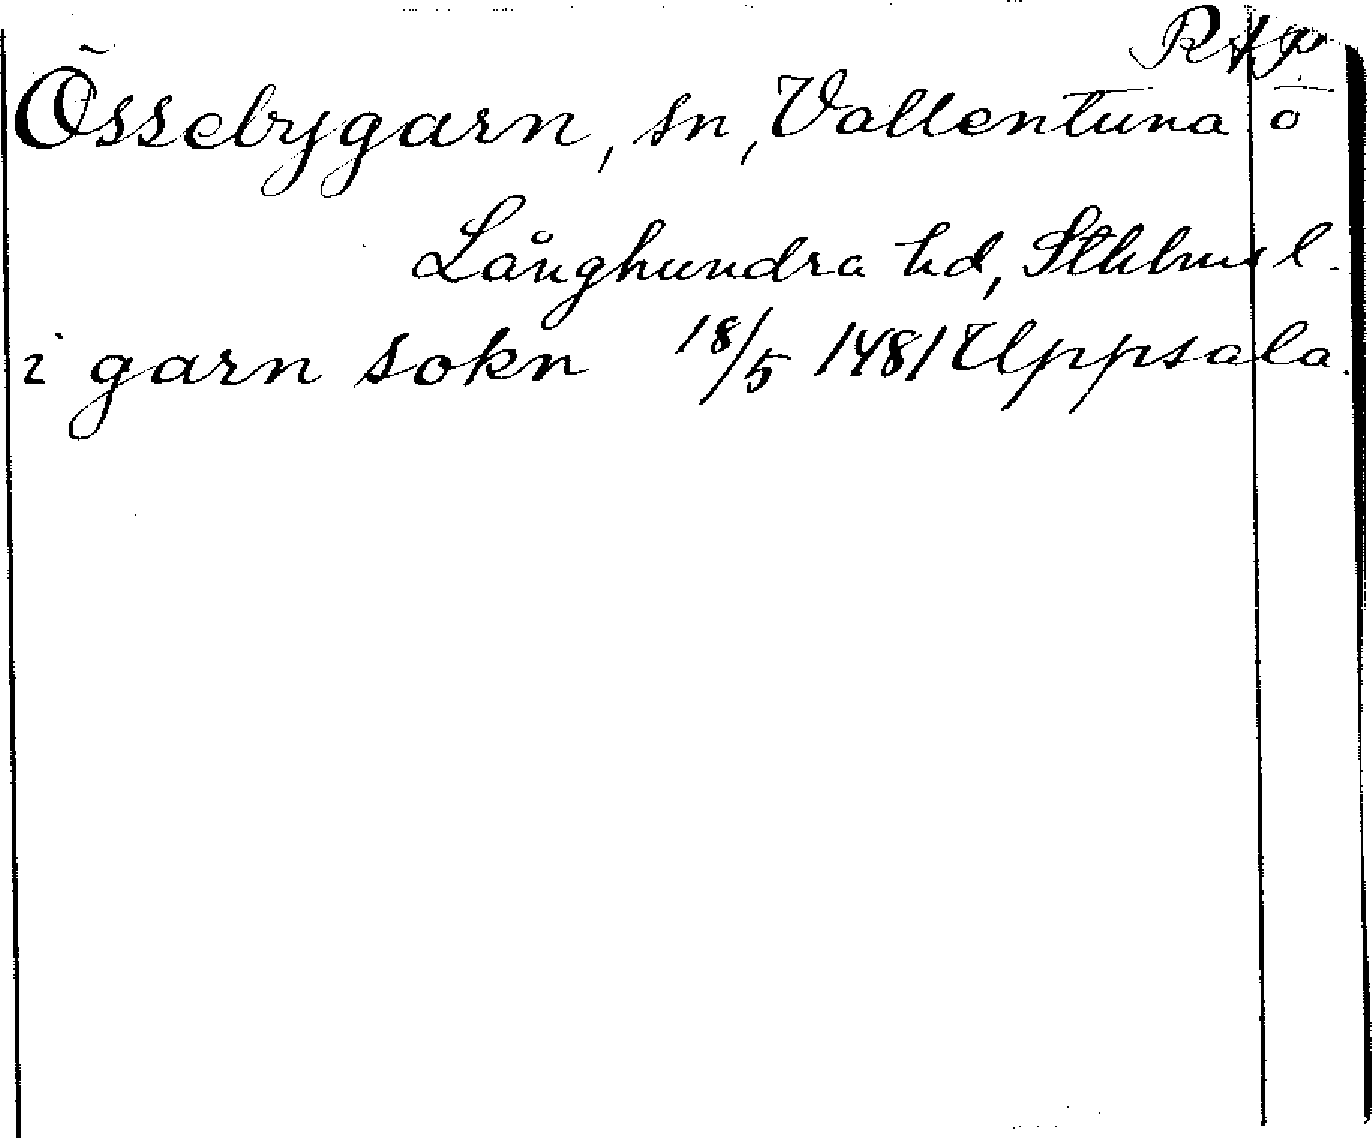 Össebygarn, sn, Vallentuna o
Långhundra hd, Sthlms l.
i garn sokn 18/5 1481 Uppsala.